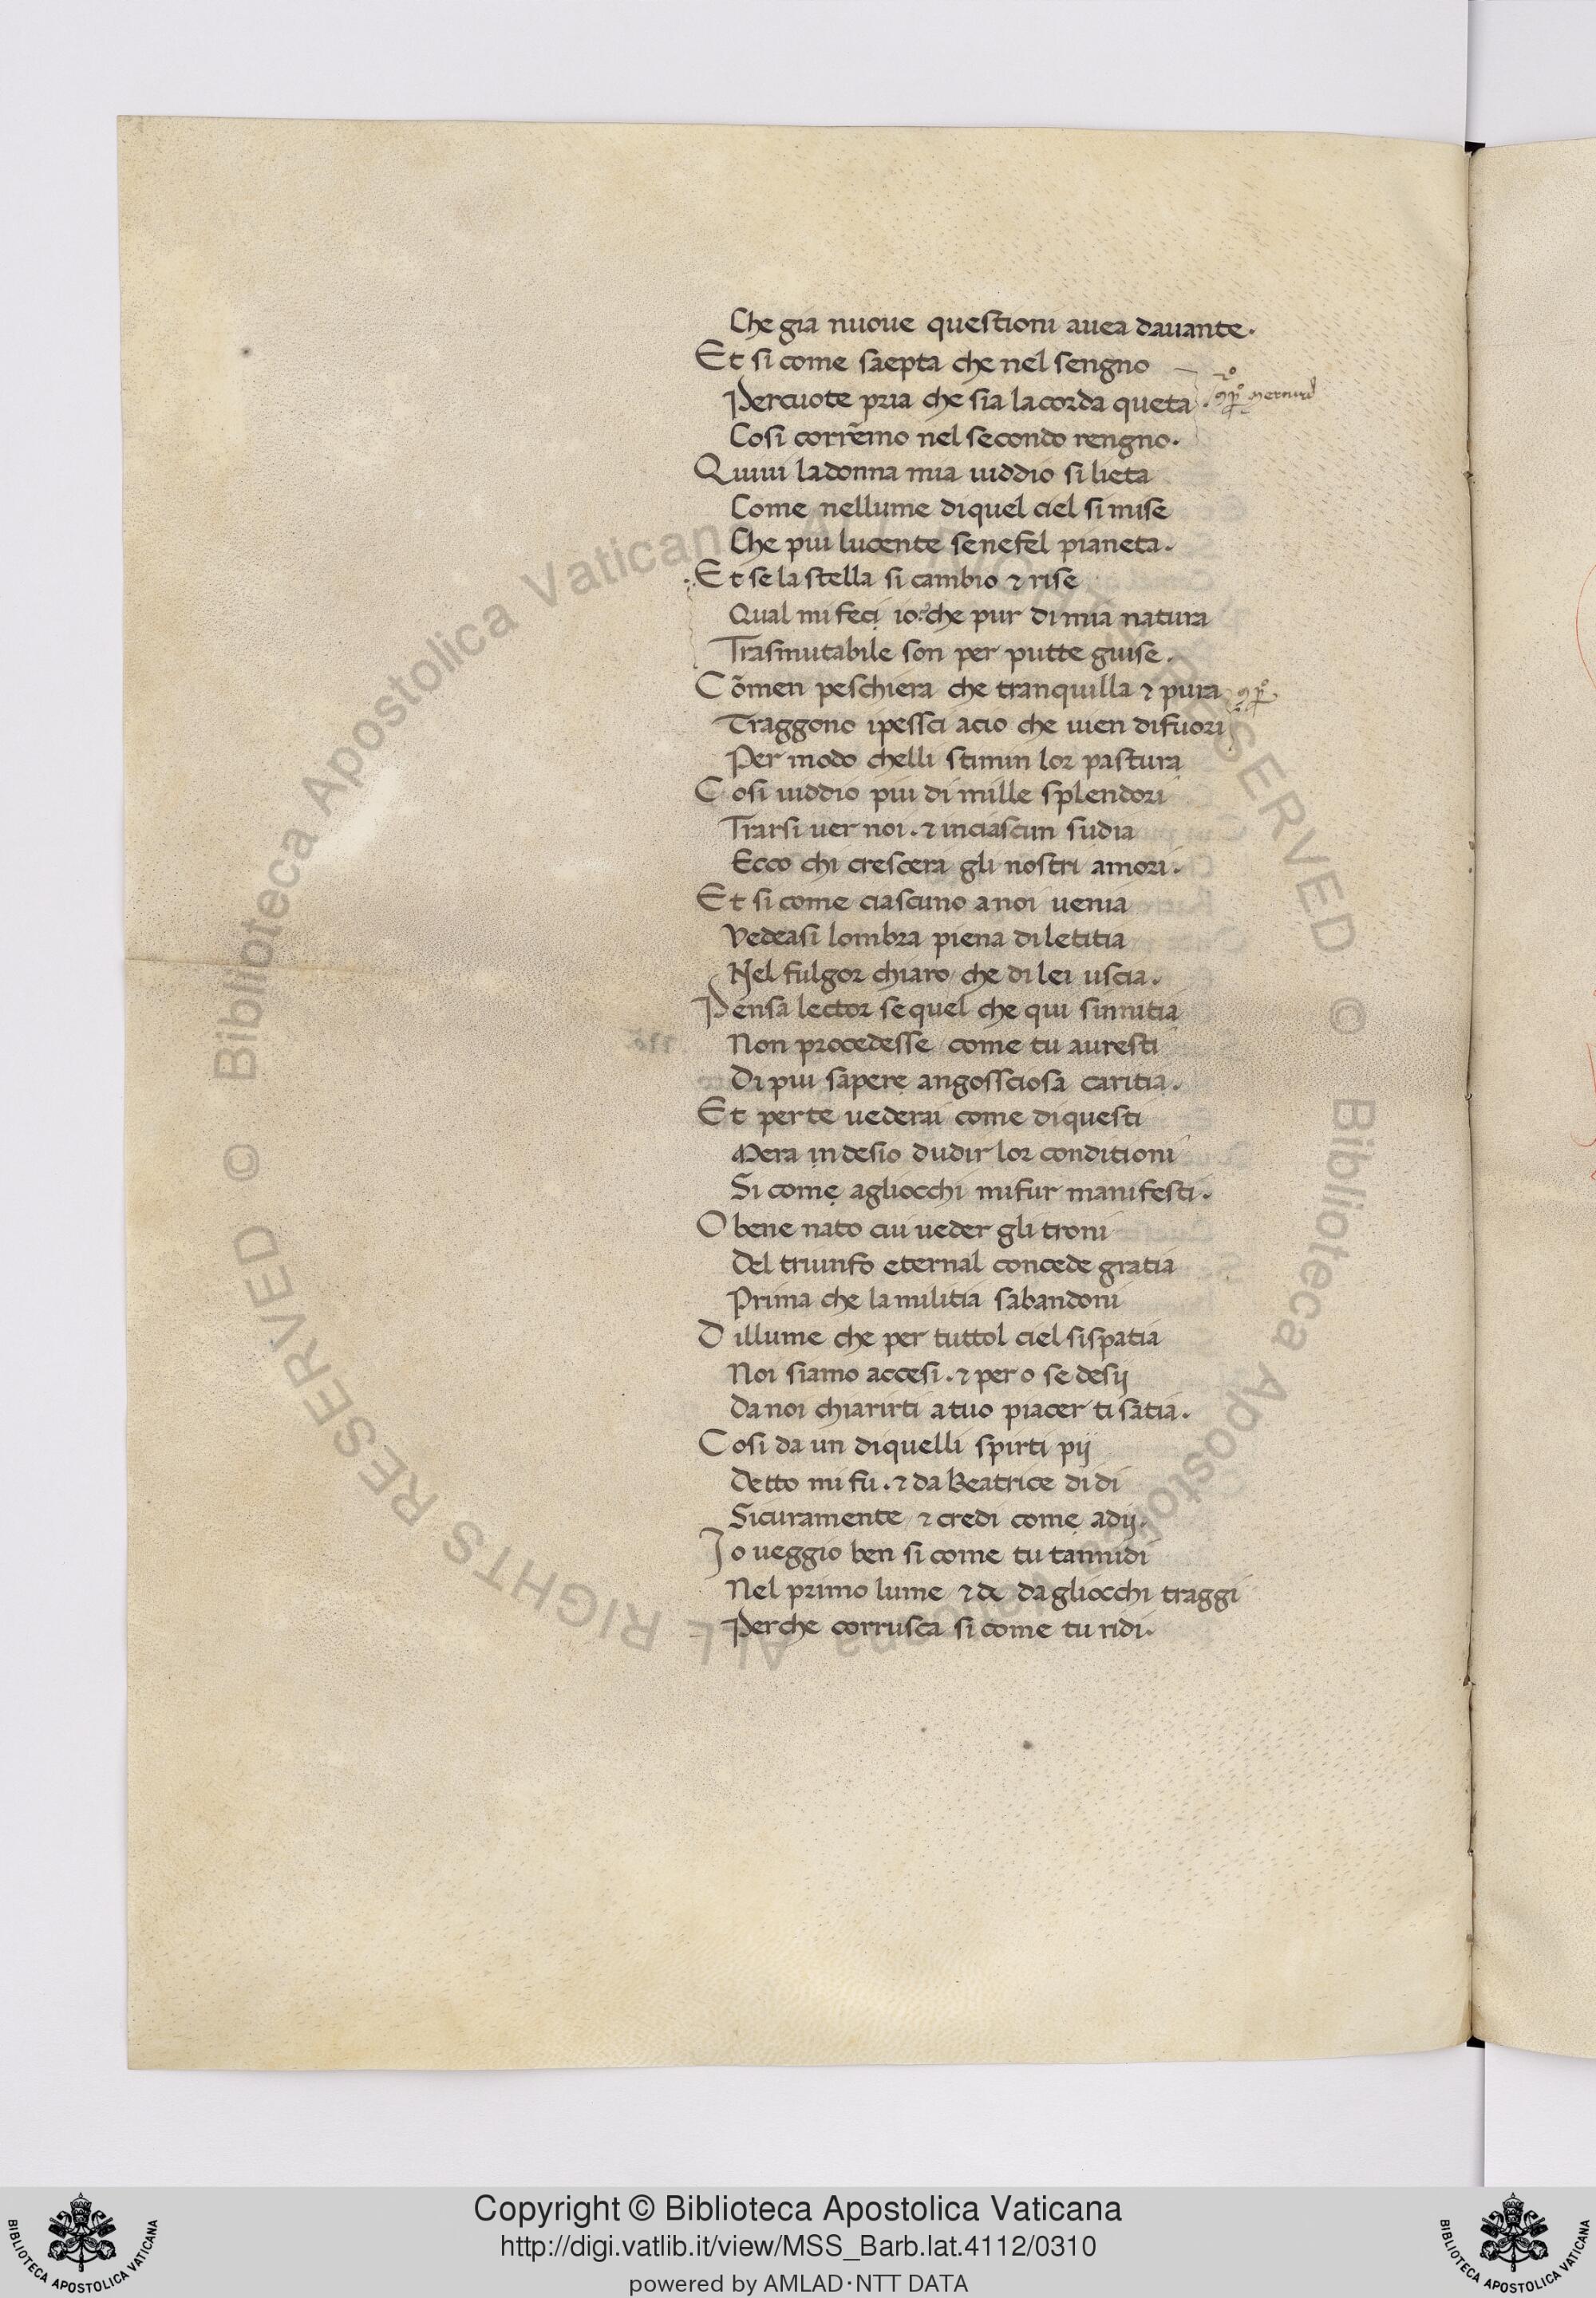 Che gia nuoue questioni auea dauante.
Et si come saepta che nel sengno
Percuote pria che sia la corda queta
Cosi corrẽmo nel secondo rengno.
Quiui la donna mia uiddio si lieta
Come nellume di quel ciel si mise
Che piu lucente senefel pianeta.
Et se la stella si cambio ⁊ rise
Qual mi feci io. che pur di mia natura
Trasmutabile son per putte guise.
Cõmen peschiera che tranquilla ⁊ pura
Traggono i pessci a cio che uien di fuori
Per modo chelli stimin lor pastura
Cosi uiddio piu di mille splendori
Trarsi uer noi. ⁊ in ciascun sudia
Ecco chi crescera gli nostri amori.
Et si come ciascuno a noi uenia
Vedeasi lombra piena di letitia
Nel fulgor chiaro che di lei uscia.
Pensa lector se quel che qui sinnitia
Non procedesse come tu auresti
Di piu sapere angossciosa caritia.
Et per te uederai come di questi
Mera in desio dudir lor conditioni
Si come agliocchi mi fur manifesti.
O bene nato cui ueder gli troni
Del triunfo eternal concede gratia
Prima che la militia sabandoni
Dillume che per tuttol ciel si spatia
Noi siamo accesi. ⁊ pero se desij
Da noi chiarirti a tuo piacer ti satia.
Cosi da un di quelli spirti pij
Detto mi fu. ⁊ da Beatrice di di
Sicuramente ⁊ credi come a dij.
Jo ueggio ben si come tu tannidi
Nel primo lume ⁊ de dagliocchi traggi
Perche corrusca si come tu ridi.
© Biblioteca Apostolica Vaticana ALL RIGHTS RESERVED © Biblioteca Apostolica Vaticana ALL RIGHTS RESERVED
Copyright © Biblioteca Apostolica Vaticana
http://digi.vatlib.it/view/MSS_Barb.lat.4112/0310
powered by AMLAD·NTT DATA
BIBLIOTECA APOSTOLICA VATICANA
BIBLIOTECA APOSTOLICA VATICANA